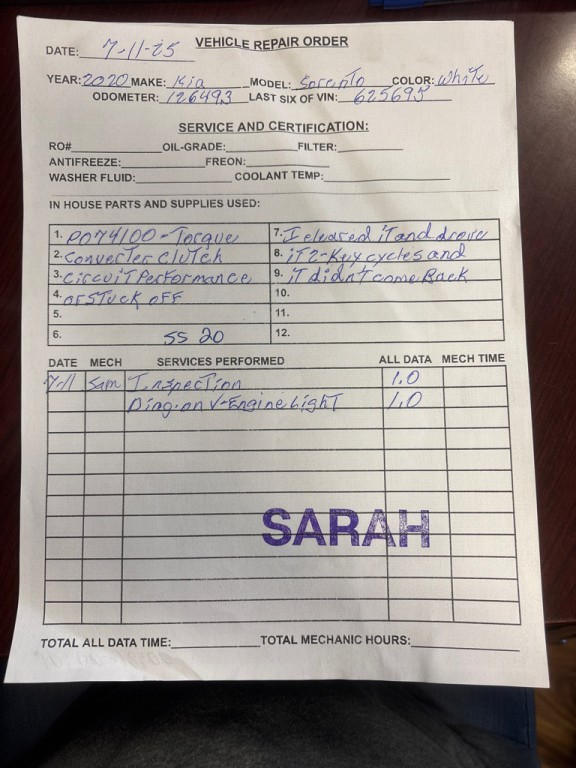 VEHICLE REPAIR ORDER
DATE: 7-11-25
YEAR: 2020 MAKE: Kia MODEL: Sorento COLOR: White
ODOMETER: 126493 LAST SIX OF VIN: 625695
SERVICE AND CERTIFICATION:
RO# OIL-GRADE: FILTER:
ANTIFREEZE: FREON:
WASHER FLUID: COOLANT TEMP:
IN HOUSE PARTS AND SUPPLIES USED:
1. P074100-Torque 7. I cleared iT and drove
2. Converter Clutch 8. iT 2-Key cycles and
3. CircuiT Performance 9. iT didn't come Back
4. or STuck off 10.
5. 11.
6. SS 20 12.
DATE MECH SERVICES PERFORMED ALL DATA MECH TIME
7-11 Sam Inspection 1.0
Diag-on V-Engine LighT 1.0
SARAH
TOTAL ALL DATA TIME: TOTAL MECHANIC HOURS: